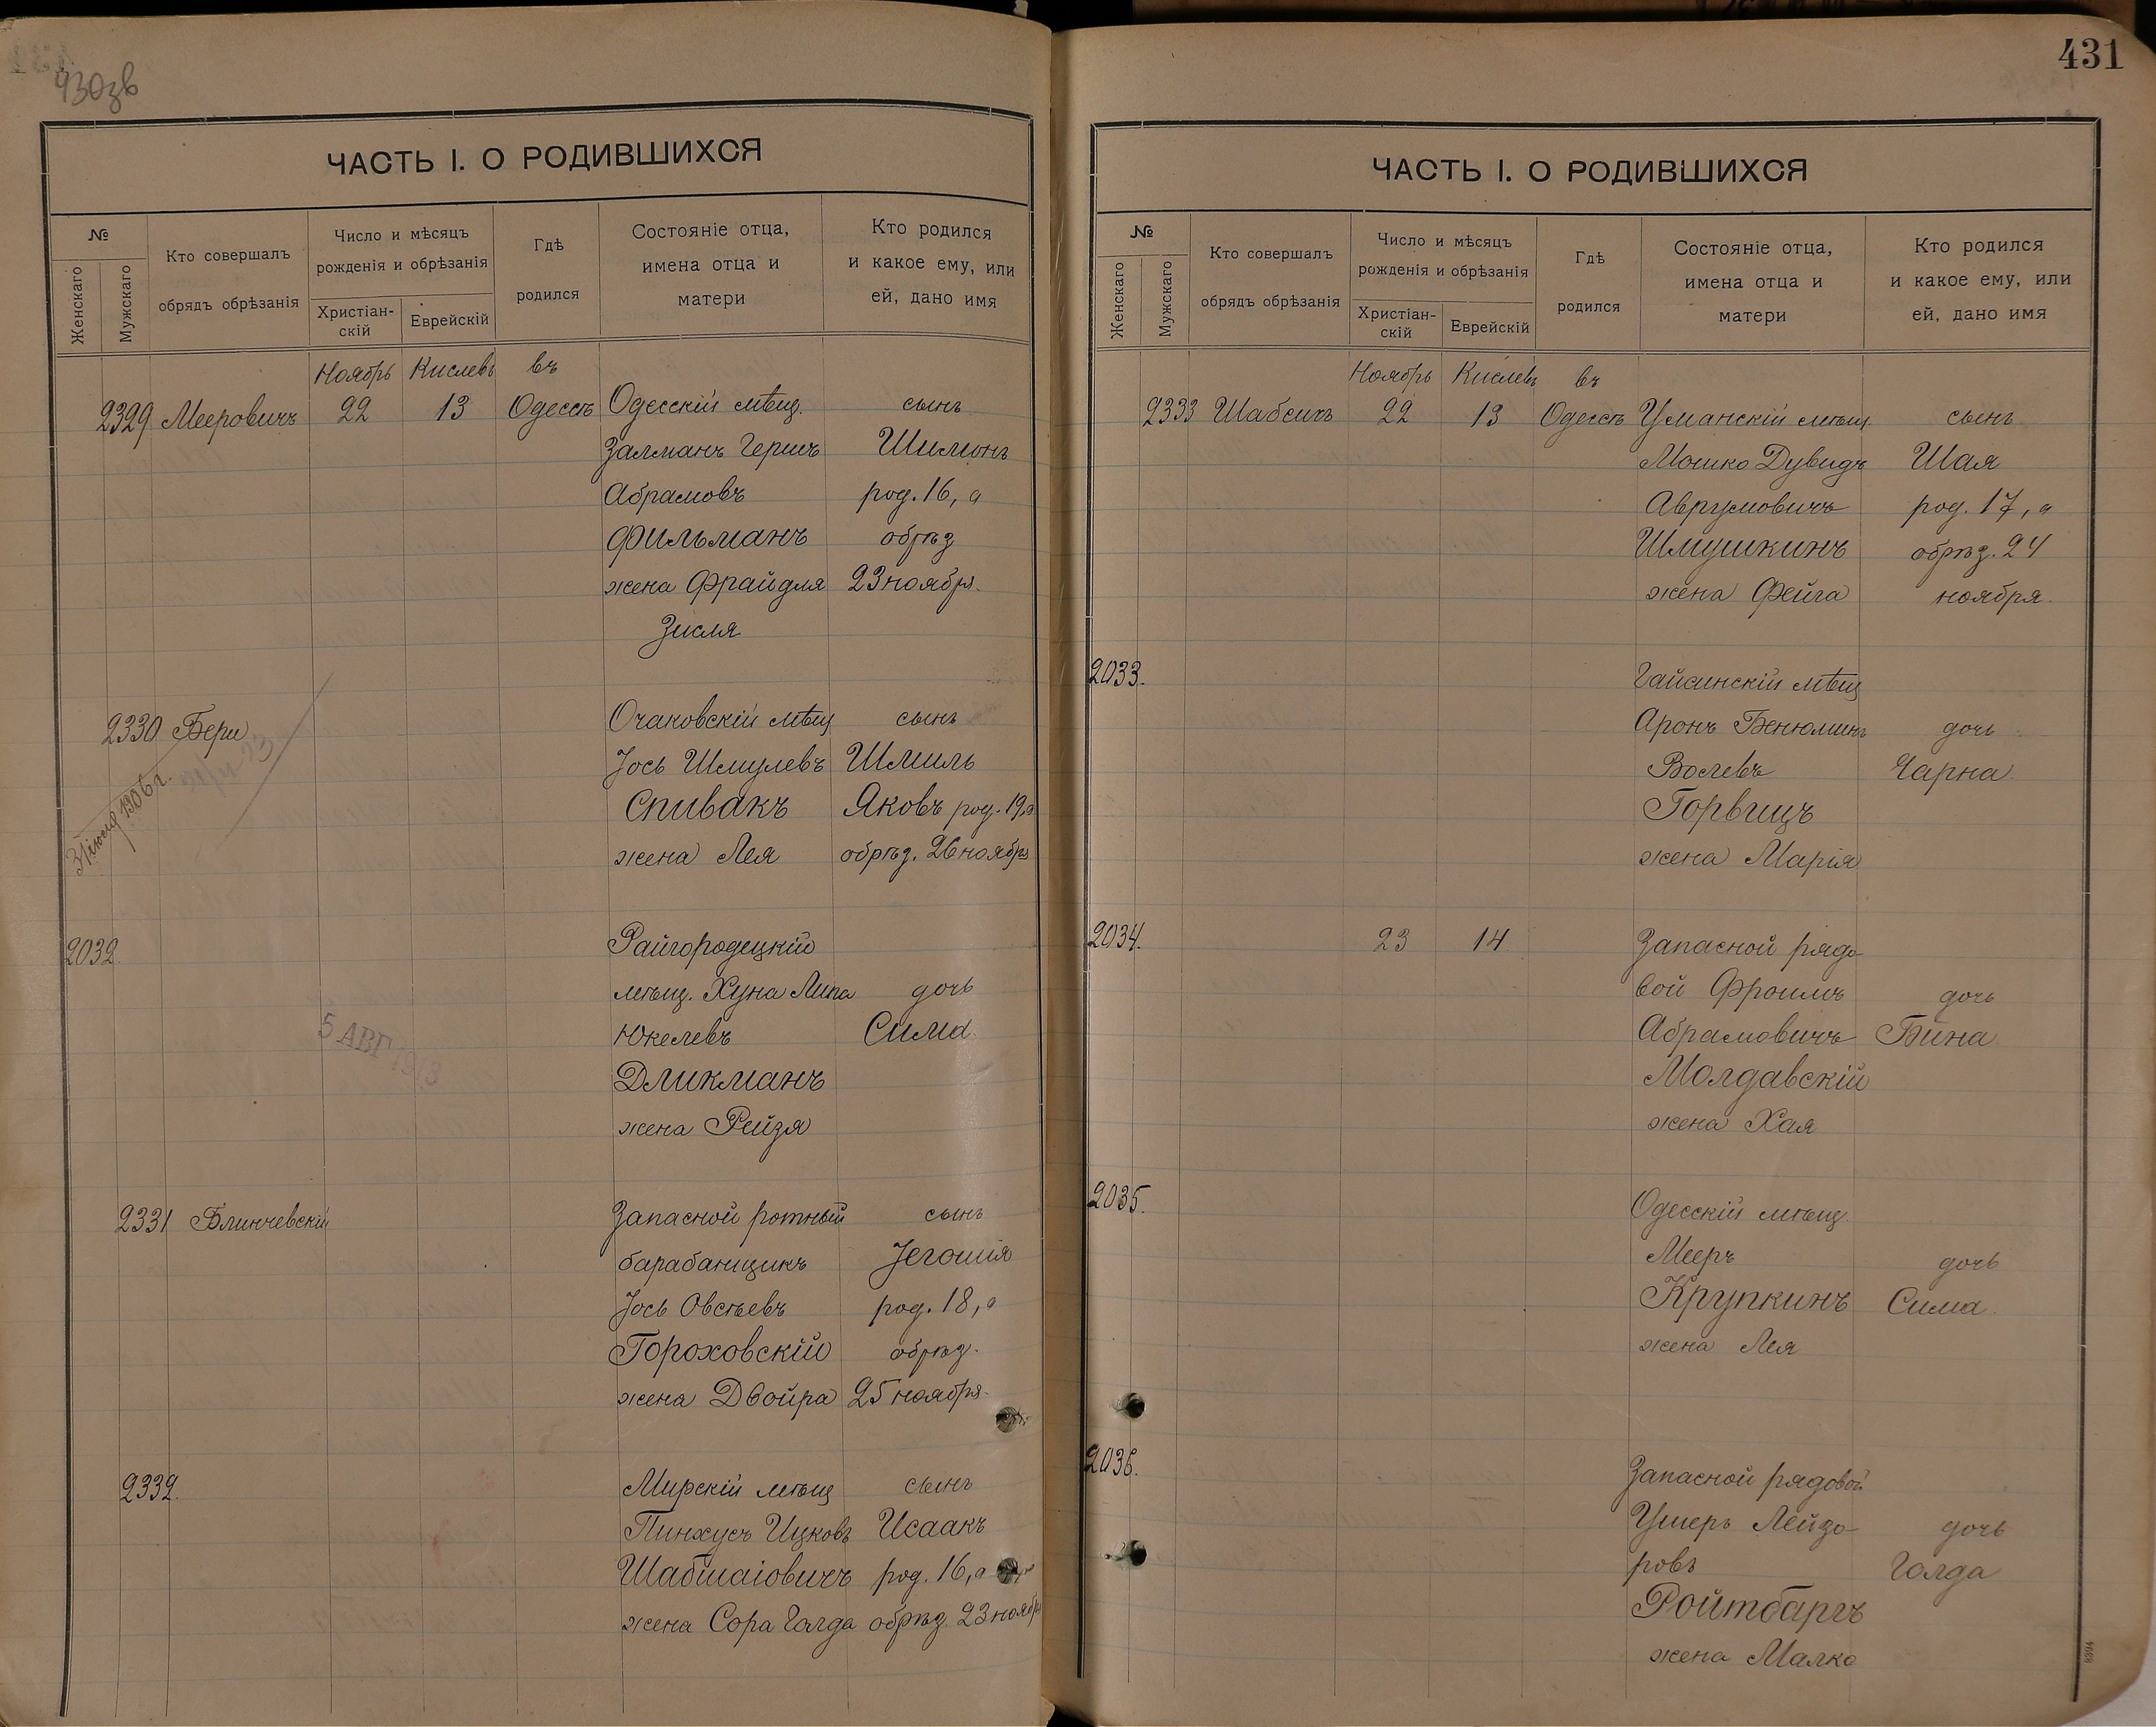 430зв
ЧАСТЬ I. О РОДИВШИХСЯ
№
Женскаго
Мужскаго
Кто совершалъ
обрядъ обрѣзанія
Число и мѣсяцъ
рожденія и обрѣзанія
Христіан-
скій
Еврейскій
Гдѣ
родился
Состояніе отца,
имена отца и
матери
Кто родился
и какое ему, или
ей, дано имя
Ноябрь Кислевъ въ
2329 Мееровичъ 22 13 Одессѣ Одесскій мѣщ. сынъ
Залманъ Гершъ Шимонъ
Абрамовъ род. 16, а
Фильманъ обрѣз
жена Фрайдля 23 ноября.
Зисля
2330 Бери Очаковскій мѣщ сынъ
Іось Шмулевъ Шмиль
Спивакъ Яковъ род. 19, а
жена Лея обрѣз. 26 ноября
1906 г.
2032 Райгородецкій
мѣщ. Хуна Липа дочь
Юкелевъ Сима
Дликманъ
жена Рейзя
5 АВГ
2331 Блинчевскій Запасной ротный сынъ
барабанщикъ Іегошія
Іось Овсѣевъ род. 18, а
Гороховскій обрѣз.
жена Двойра 25 ноября.
2332. Мирскій мѣщ сынъ
Пинхусъ Ицковъ Исаакъ
Шабшаіовичъ род. 16, а
жена Сора Голда обрѣз. 23 ноября
431
ЧАСТЬ I. О РОДИВШИХСЯ
№
Женскаго
Мужскаго
Кто совершалъ
обрядъ обрѣзанія
Число и мѣсяцъ
рожденія и обрѣзанія
Христіан-
скій
Еврейскій
Гдѣ
родился
Состояніе отца,
имена отца и
матери
Кто родился
и какое ему, или
ей, дано имя
Ноябрь Кислевъ въ
2333 Шабсихъ 22 13 Одессѣ Уманскій мѣщ. сынъ
Мошко Дувидъ Шая
Аврумовичъ род. 17, а
Шмушкинъ обрѣз. 24
жена Фейга ноября.
2033. Гайсинскій мѣщ
Аронъ Бенюминъ дочь
Волевъ Чарна
Горвицъ
жена Марія
2034. 23 14 Запасной рядо-
вой Фроимъ дочь
Абрамовичъ Бина
Молдавскій
жена Хая
2035. Одесскій мѣщ.
Мееръ дочь
Крупкинъ Сима.
жена Лея
2036. Запасной рядовой
Ушеръ Лейзо- дочь
ровъ Голда
Ройтбаргъ
жена Малка